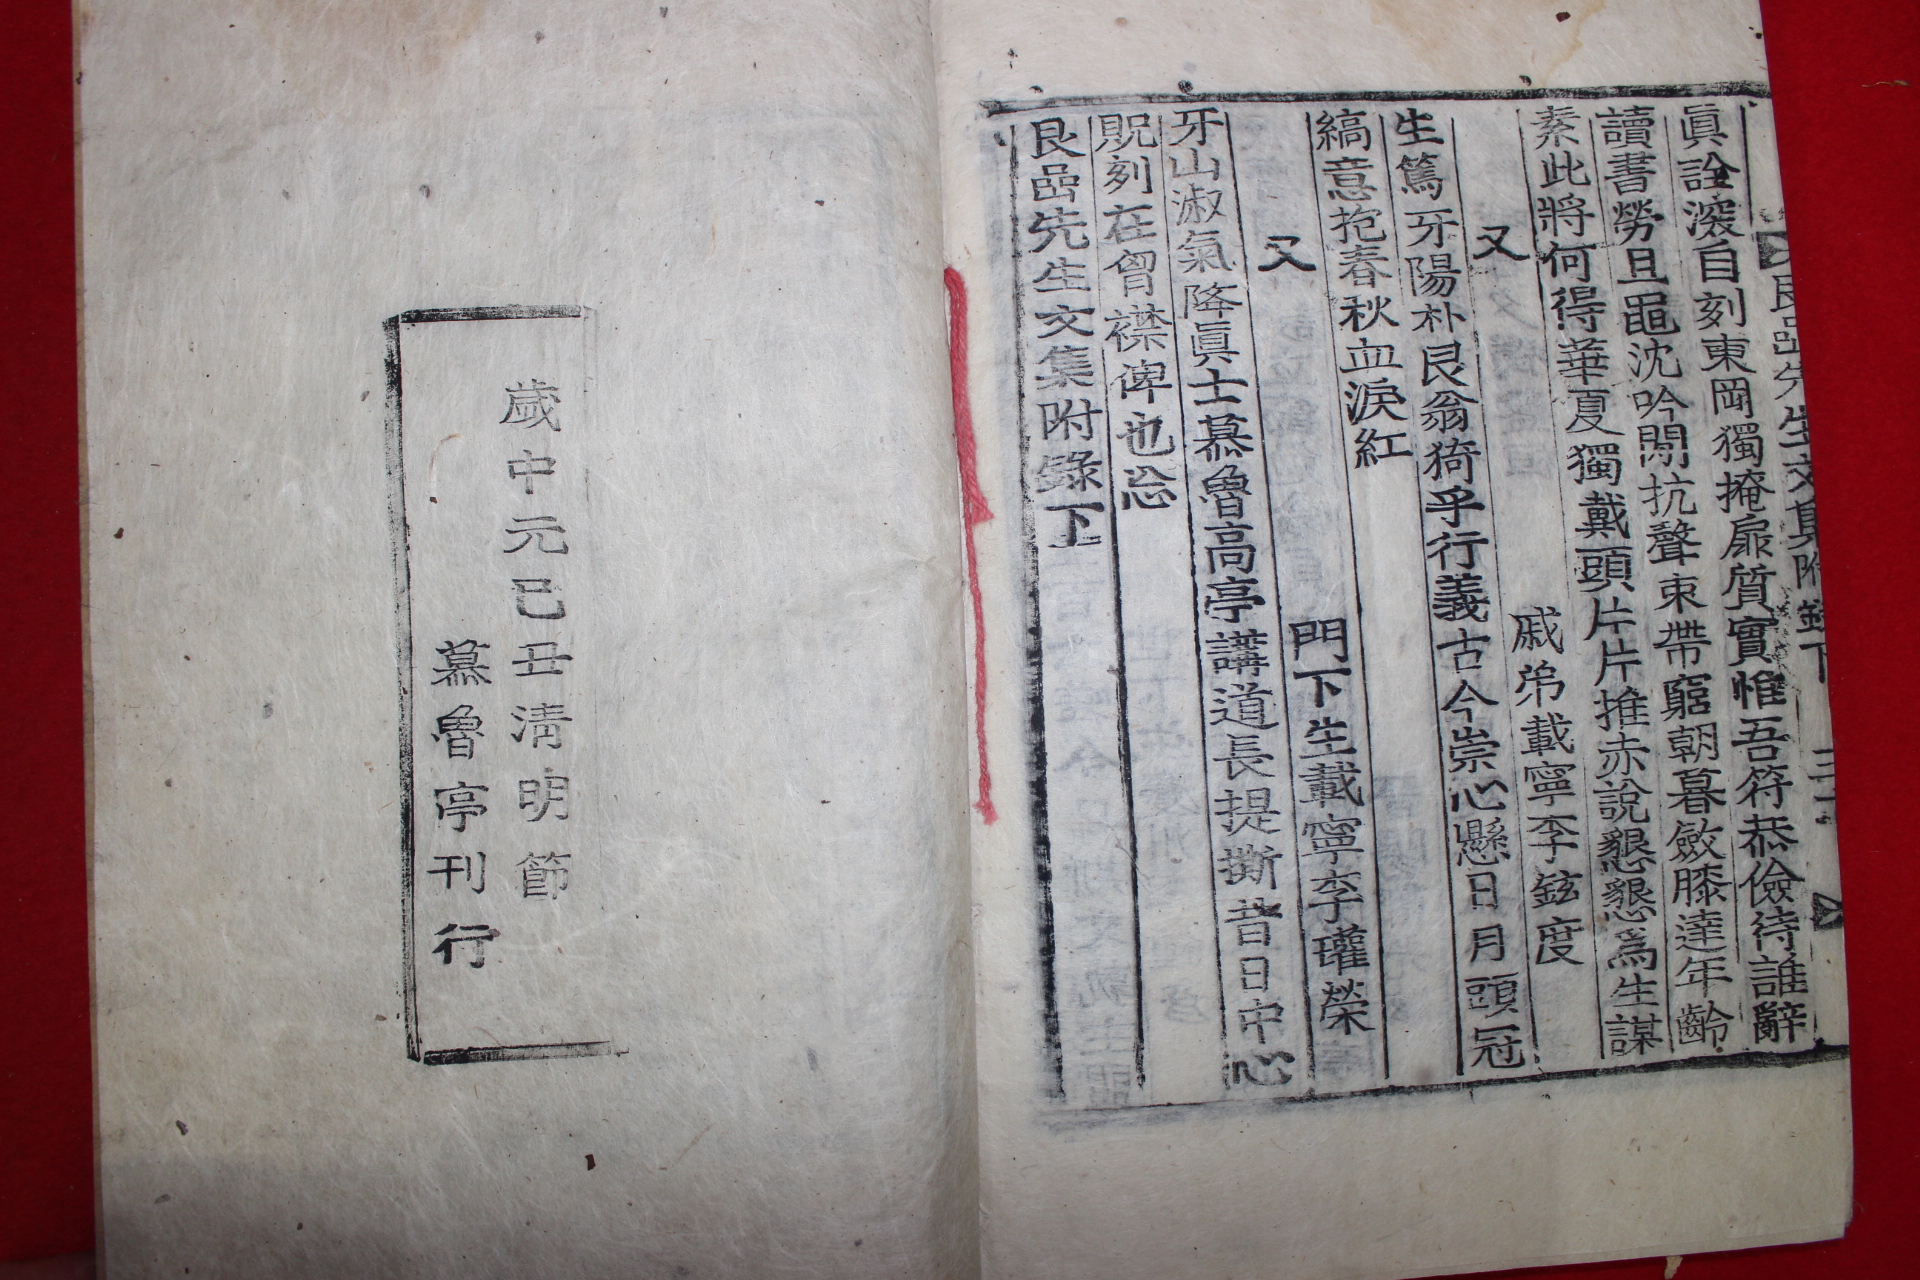 艮嵒先生文集附錄下
眞詮深自刻東岡獨掩扉質實惟吾符恭儉待誰辭
讀書勞且黽沈吟閒抗聲束帶窮朝暮斂膝達年齡
素此將何得華夏獨戴頭片片推赤說懇懇爲生謀
又 戚弟載寧李鉉度
生篤牙陽朴艮翁猗乎行義古今崇心懸日月頭冠
縞意抱春秋血淚紅
又 門下生載寧李瓘榮
牙山淑氣降眞士慕魯高亭講道長提撕昔日中心
貺刻在胷襟俾也忘
艮嵒先生文集附錄下
歲中元己丑淸明節
慕魯亭刊行